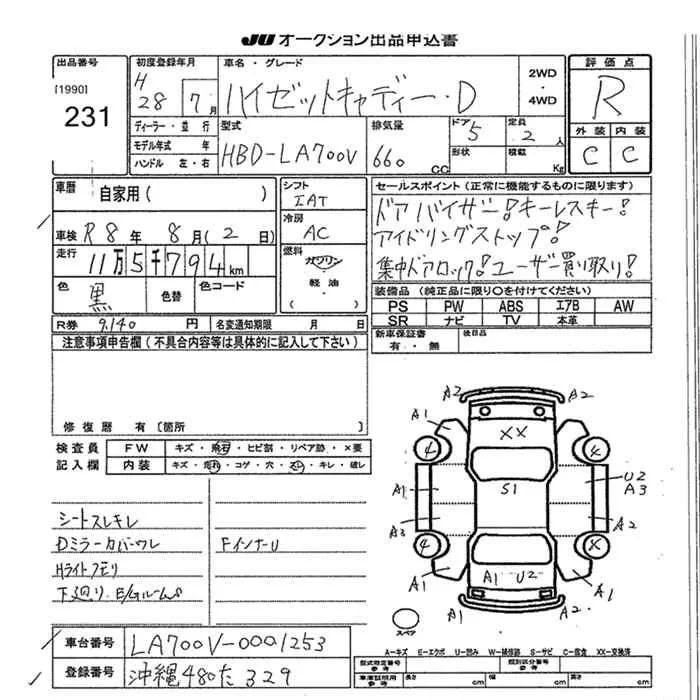 JU オークション出品申込書
出品番号
[1990]
231
初度登録年月
H
28 7月
車名・グレード
ハイゼットキャディー・D
2WD
・
4WD
評価点
R
外装 内装
C C
ディーラー・並行
モデル年式 年
ハンドル 左・右
型式
HBD-LA700V
排気量
660
CC
ドア
5
形状
定員
2
人
積載
Kg
車歴
自家用( )
車検 R8年 8月(2日)
走行
11万5千794km
色
黒
色替
色コード
シフト
IAT
冷房
AC
燃料
ガソリン
・
軽油
( )
R券 9,140 円
名変通知期限 月 日
セールスポイント(正常に機能するものに限ります)
ドアバイザー!キーレスキー!
アイドリングストップ!
集中ドアロック!ユーザー買い取り!
装備品(純正品に限り〇を付けてください)
PS PW ABS エアB AW
SR ナビ TV 本革
新車保証書
有・無
後日品
注意事項申告欄(不具合内容等は具体的に記入して下さい)
修復歴 有〔箇所 〕
検査員
記入欄
FW キズ・飛石・ヒビ割・リペア跡・×要
内装 キズ・汚れ・コゲ・穴・スレ・キレ・破レ
シートスレキレ
Dミラーカバーワレ
FインナーU
Hライトクモリ
下廻り、E/GルームS
A2 A2
A1 A1
XX
4 4
A1 S1 U2
A3
A3 A2
4 X
A1 A1 U2 A1
A1 A2
スペア
A-キズ E-エクボ U-凹み W-補修跡 S-サビ C-腐食 XX-交換済
車台番号 LA700V-0001253
登録番号 沖縄480た329
型式指定番号
参考
類別区分番号
参考
車庫証明用
参考
長さ cm 幅 cm 高さ cm